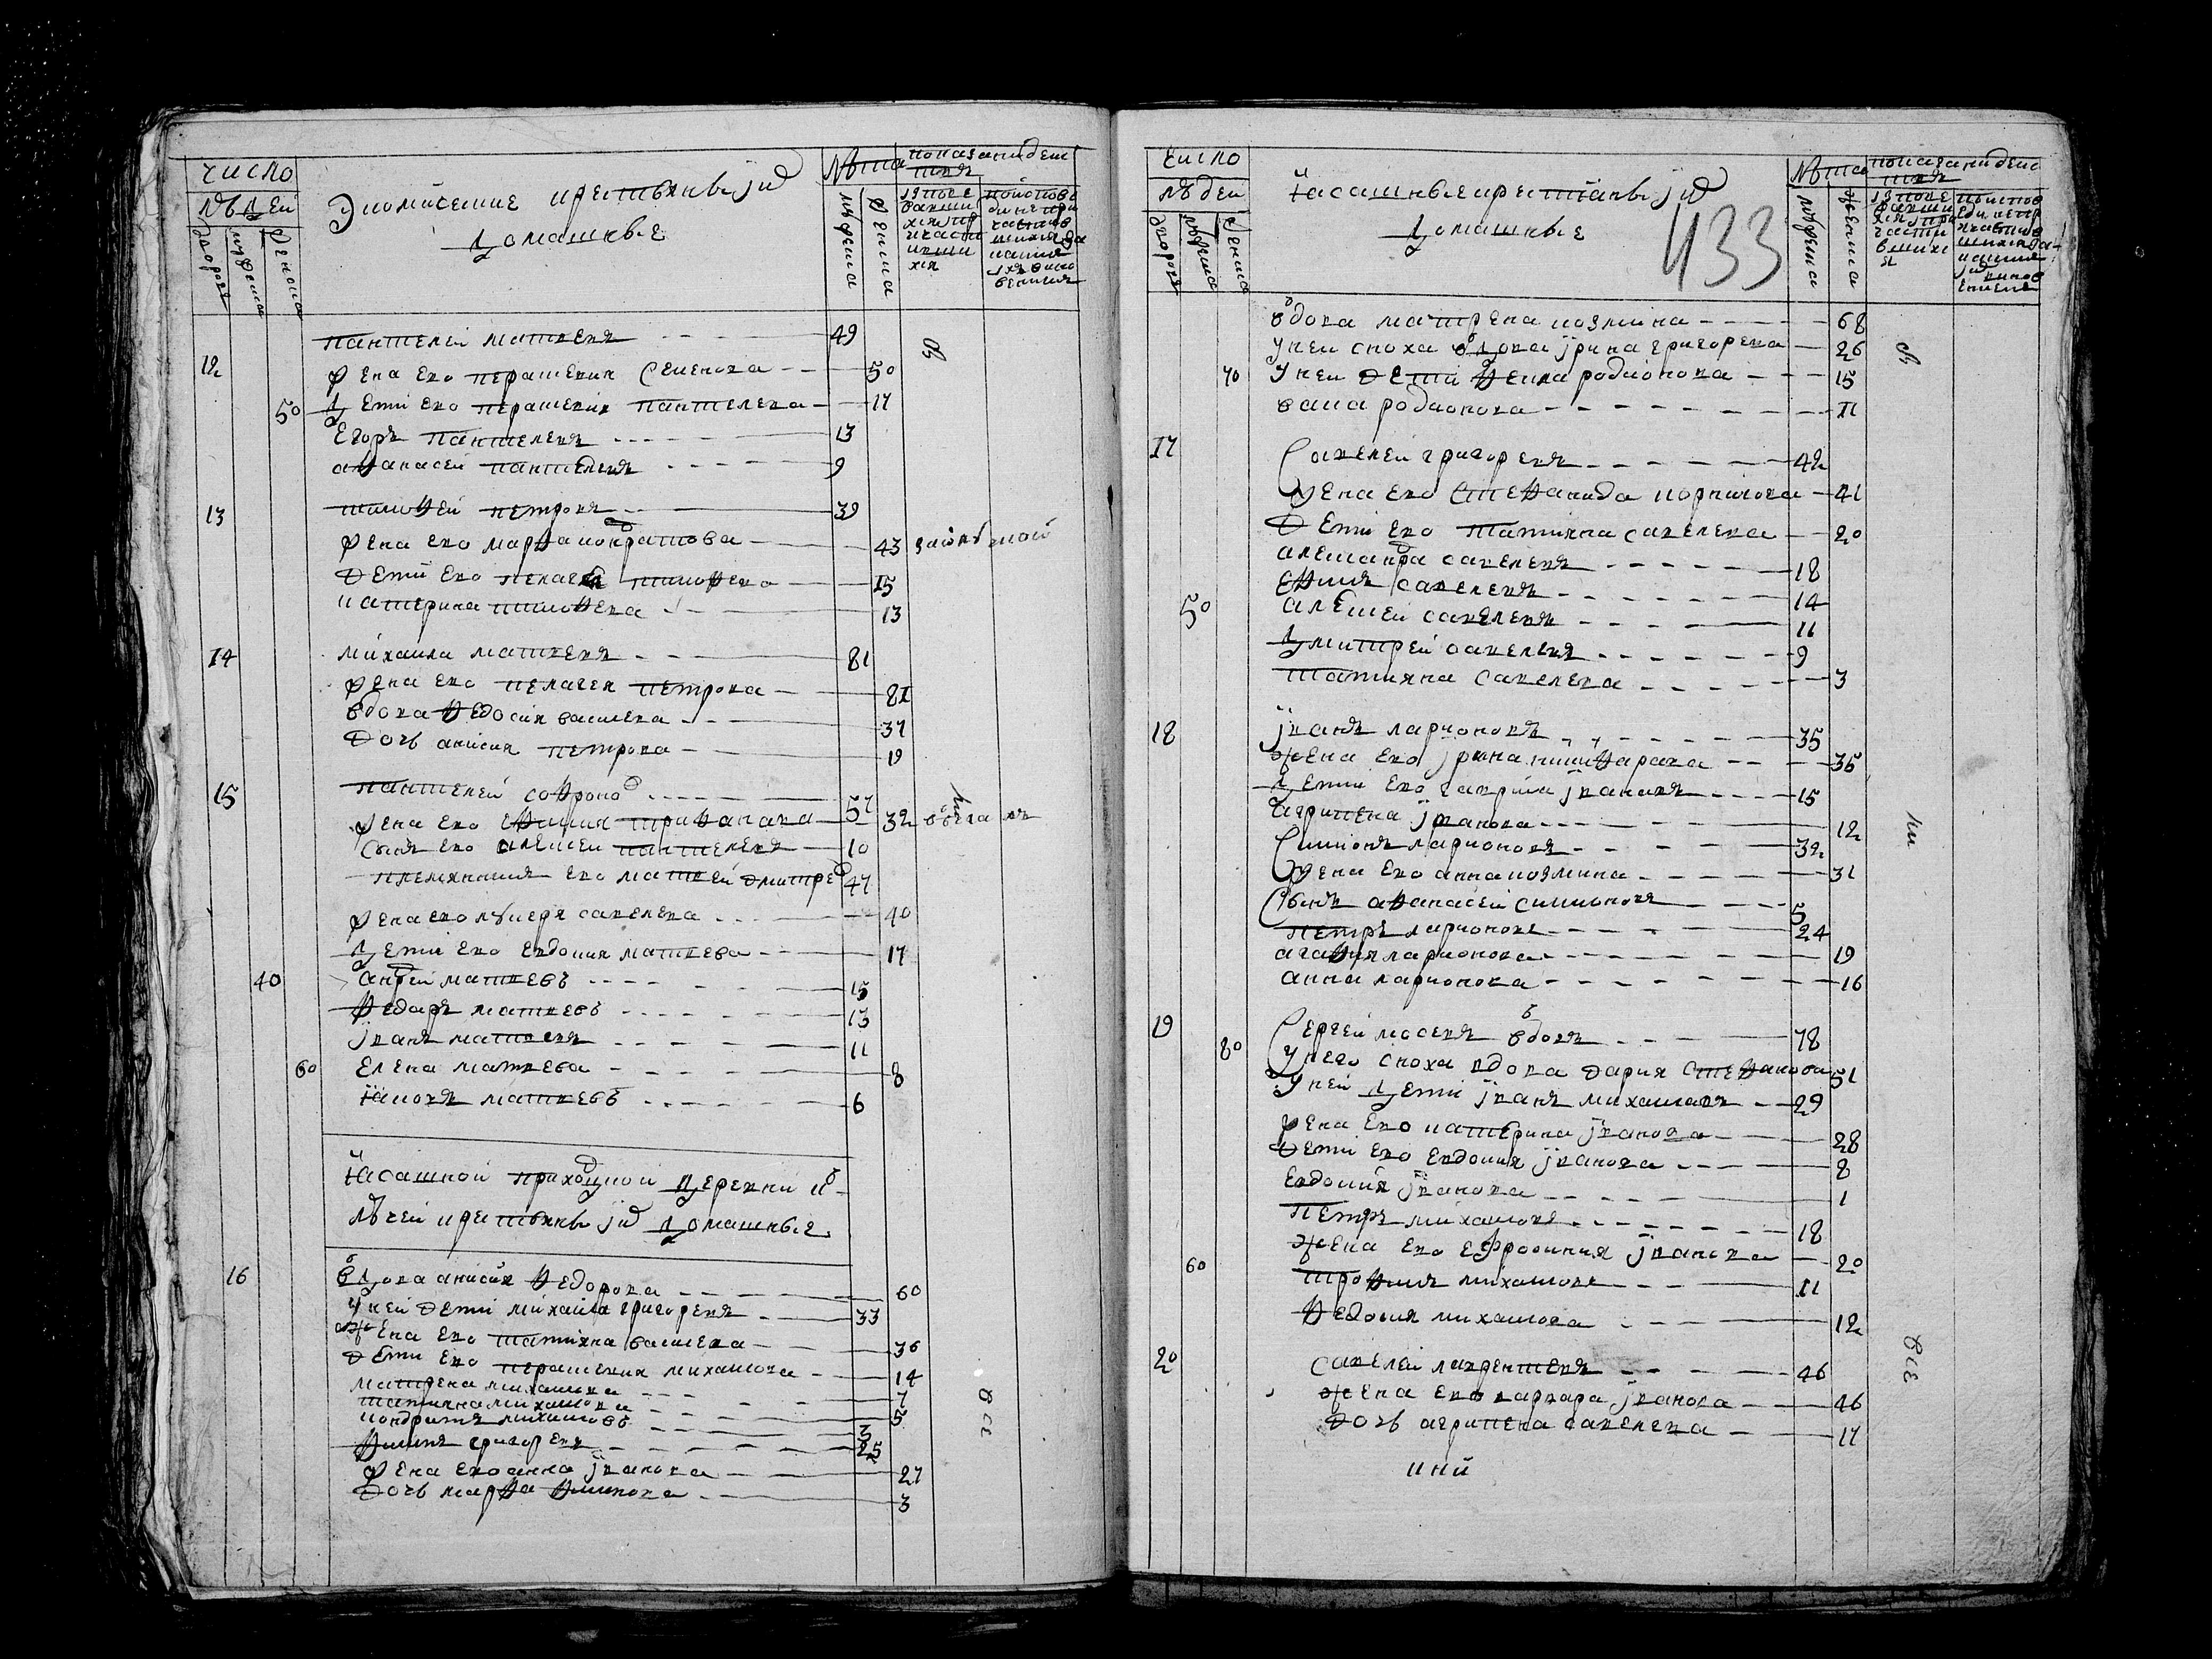 число
людей
дворовъ
мужеска
женска
Экономические крестьяне и их
домашные
Лѣта
мужеска
женска
показание действия
12 пантелей матвеевъ 49
жена ево перасковия семенова 50
50 дети ево перасковия пантелева 17
егоръ пантелевъ 13
афанасей пантелевъ 9
13 тимофей петровъ 39
жена ево марфа кондратова 43
дети ево пелагея тимофева 15
катерина тимофева 13
14 михаила матвевъ 81
жена ево пелагея петрова 81
вдова федосия василева 37
дочь анисия петрова 19
15 пантелей софроно 57
жена ево ефимия трифанава 32
сынъ ево алексей пантелевъ 10
племянникъ ево матвей дмитре 47
жена ево лукеря савелева 40
дети ево евдокия матвева 17
40 андрей матвевъ 15
федаръ матвевъ 13
иванъ матвевъ 11
60 елена матвева 8
яковъ матвевъ 6
ясашной приходной деревни
крестьяне и их домашные
16 вдова анисия федорова 60
у ней дети михаила григоревъ 33
жена ево татияна василева 36
дети ево перасковия михайлова 14
матрена михайлова 7
татияна михайлова 5
кондратъ михайловъ 3
филипъ григоревъ 25
жена ево анна иванова 27
дочь марфа филипова 3
Все
число
людей
дворовъ
мужеска
женска
ясашные крестьяне и их
домашные
433
Лѣта
мужеска
женска
показание действия
вдова матрена козмина 68
у ней сноха вдова ирина григорева 26
70 у ней дети фекла родионова 15
васа родионова 11
17 савелей григоревъ 42
жена ево стефанида корнилова 41
дети ево татияна савелева 20
александра савелевъ 18
ефимъ савелевъ 14
50 алексей савелевъ 11
дмитрей савелевъ 9
татияна савелева 3
18 иванъ ларионовъ 35
жена ево ирина никифарава 35
дети ево гаврила ивановъ 15
агрипена иванова 12
симионъ ларионовъ 32
жена ево анна козмина 31
сынъ афанасей симионовъ 5
петръ ларионовъ 24
агафия ларионова 19
анна ларионова 16
19 сергей мосевъ вдовъ 78
80 у нево сноха вдова дария стефанова 51
у ней дети иванъ михайлавъ 29
жена ево катерина иванова 28
дети ево евдокия иванова 8
евдокия иванова 1
петръ михайловъ 18
жена ево ефросиния иванова 20
60 трофимъ михайловъ 11
федосия михайлова 12
20 савелей лаврентевъ 46
жена ево варвара иванова 46
дочь агрипена савелева 17
Все